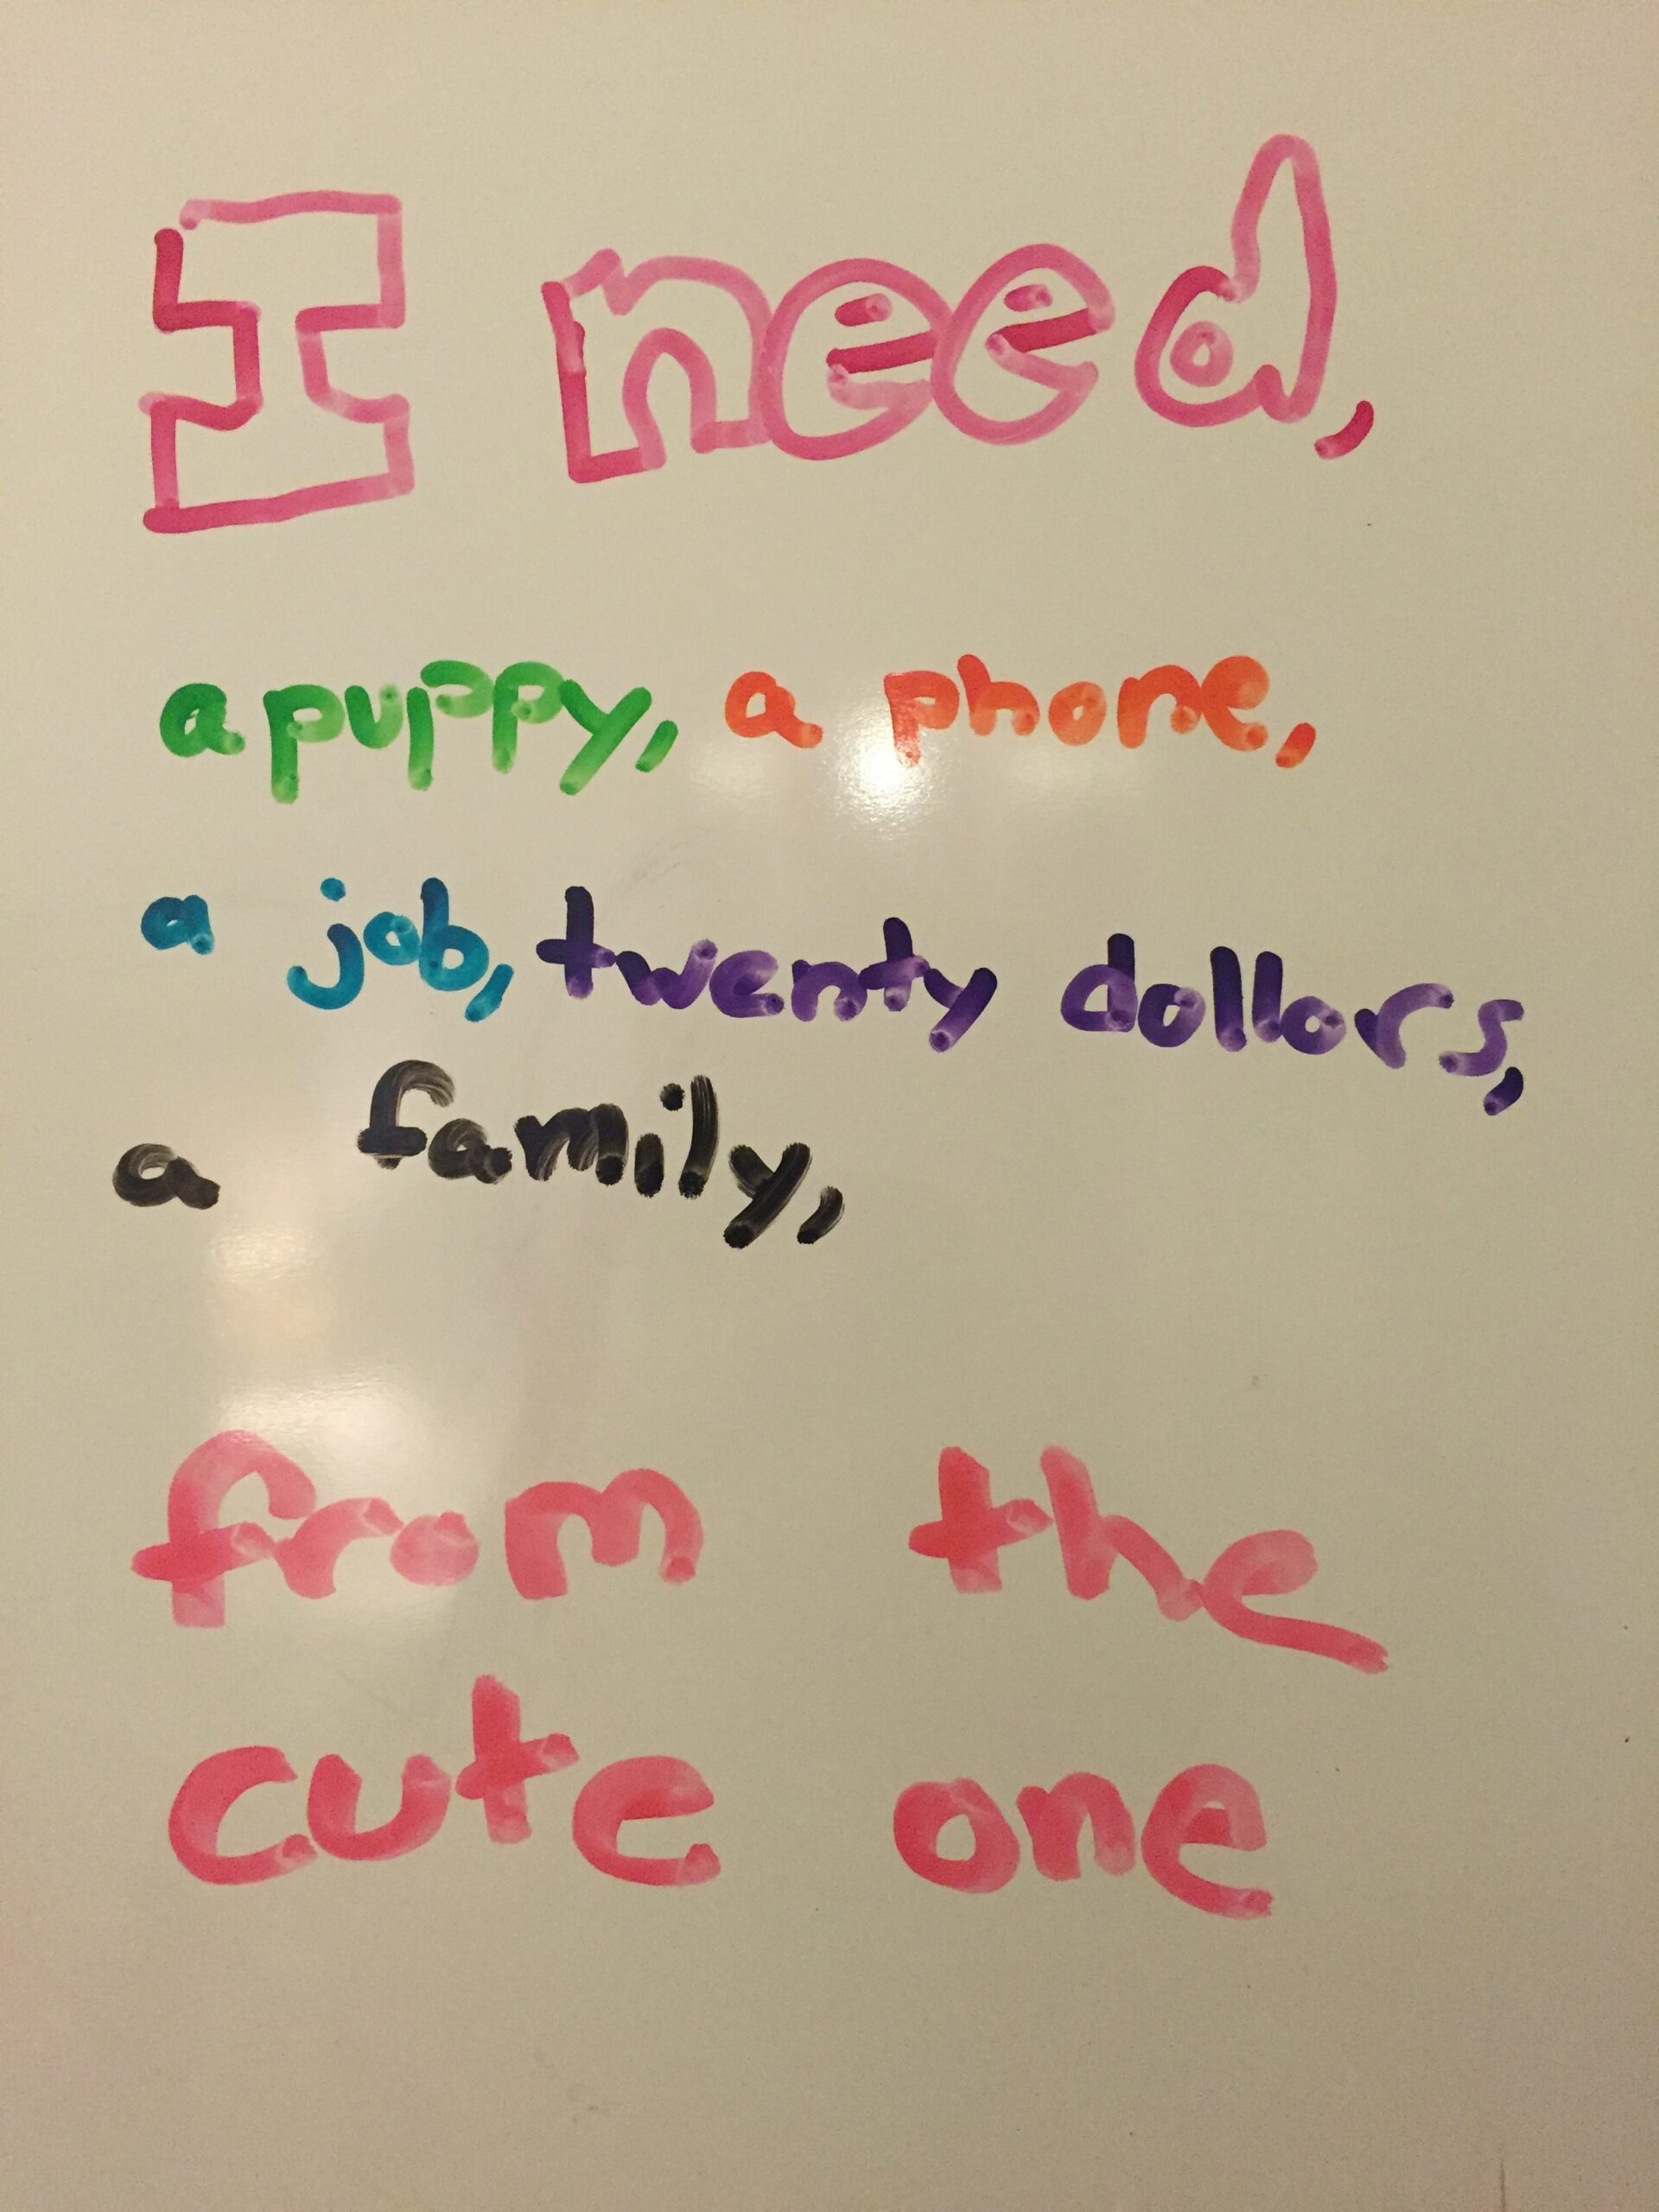 I need,
a puppy, a phone,
a job, twenty dollors,
a family,
from the
cute one